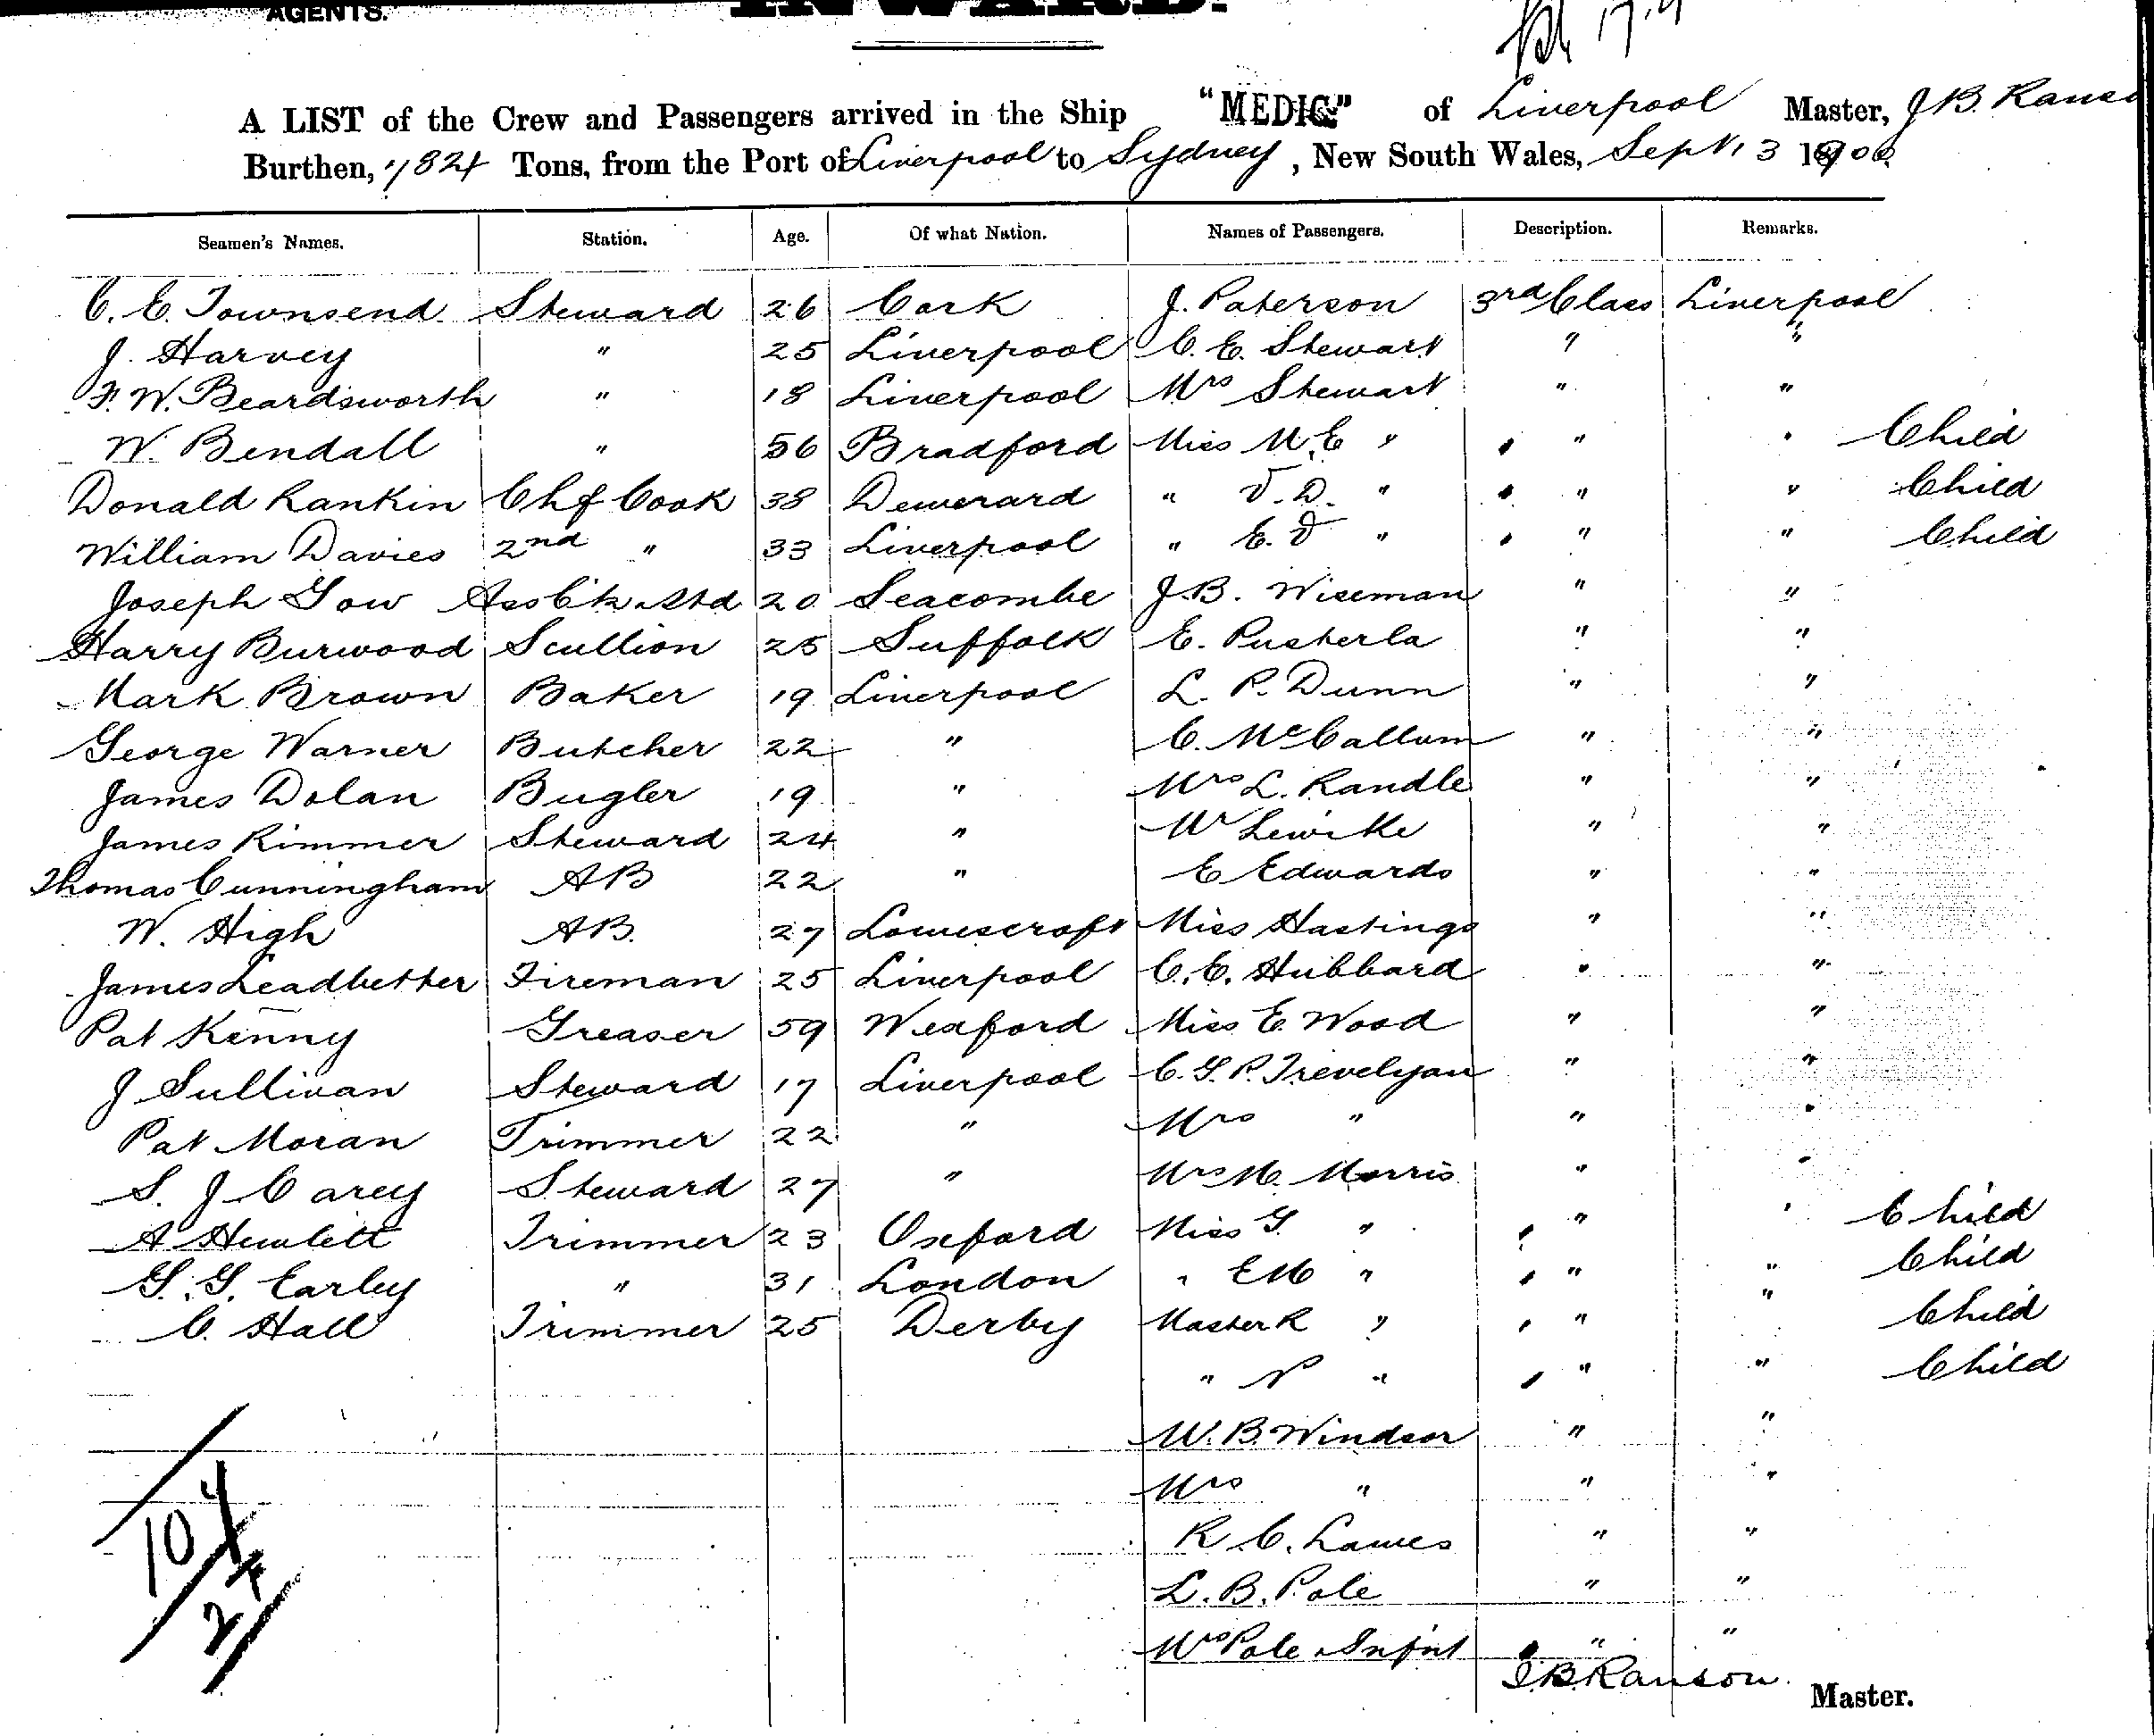 AGENTS.
INWARD.
A LIST of the Crew and Passengers arrived in the Ship "MEDIC" of Liverpool Master, J B. Rans
Burthen, 7824 Tons, from the Port of Liverpool to Sydney, New South Wales, Sept. 3 1900
Seamen's Names. Station. Age. Of what Nation. Names of Passengers. Description. Remarks.
C. E. Townsend Steward 26 Cork J. Paterson 3rd Class Liverpool
J. Harvey " 25 Liverpool C. E. Stewart " "
F. W. Beardsworth " 18 Liverpool Mrs Stewart " "
W. Bendall " 56 Bradford Miss M. E " " " Child
Donald Rankin Chf Cook 38 Dewerard " V. D. " " " Child
William Davies 2nd " 33 Liverpool " E. V " " " Child
Joseph Gow Ass Ck Std 20 Seacombe J. B. Wiseman " "
Harry Burwood Scullion 25 Suffolk E. Pusterla " "
Mark Brown Baker 19 Liverpool L. P. Dunn " "
George Warner Butcher 22 " C. McCallum " "
James Dolan Bugler 19 " Mrs L. Randle " "
James Rimmer Steward 24 " Mr Lewike " "
Thomas Cunningham AB 22 " E Edwards " "
W. High AB. 27 Lowescroft Miss Hastings " "
James Leadbetter Fireman 25 Liverpool C. C. Hubbard " "
Pat Kenny Greaser 59 Wexford Miss E. Wood " "
J Sullivan Steward 17 Liverpool C. G. P. Trevelyan " "
Pat Moran Trimmer 22 " Mrs " " "
S. J Carey Steward 27 " Mrs M. Morris " "
A Hewlett Trimmer 23 Oxford Miss G. " " " Child
G. G. Earley " 31 London " E M " " " Child
C. Hall Trimmer 25 Derby Master R " " " Child
" N " " " Child
W. B. Windsor " "
Mrs " " "
R. C. Lawes " "
L. B. Pole " "
Mrs Pole & Infnt " "
J. B. Ranson Master.
104